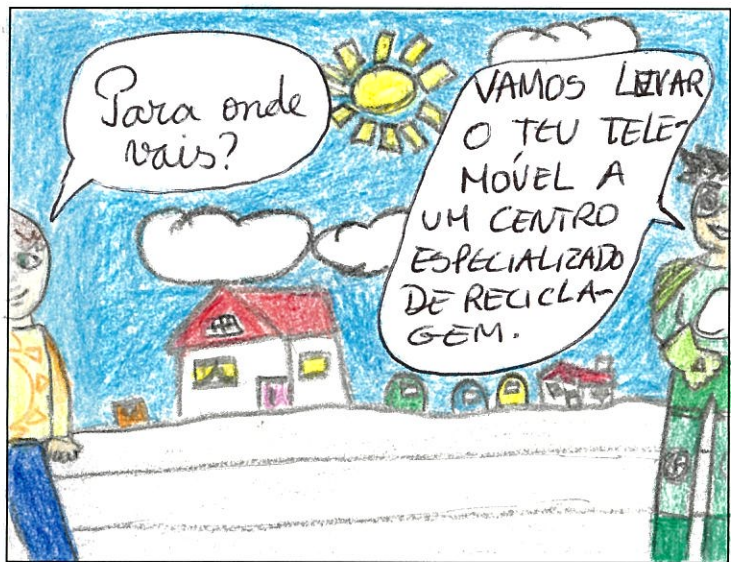 Para onde
vais?
VAMOS LEVAR
O TEU TELE-
MÓVEL A
UM CENTRO
ESPECIALIZADO
DE RECICLA-
GEM.